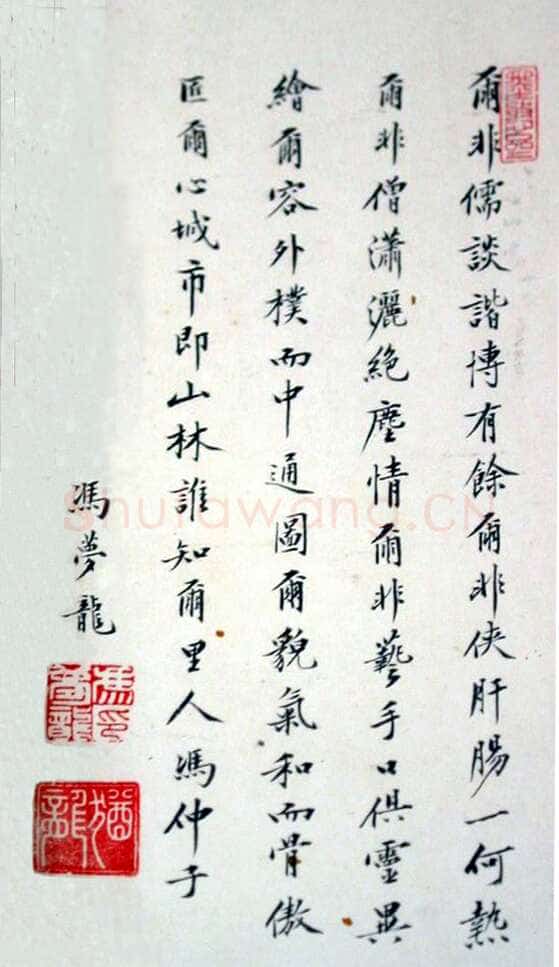 爾非儒談諧博有餘爾非俠肝腸一何熱
爾非僧瀟灑絶塵情爾非藝手口俱靈異
繪爾容外樸而中通圖爾貌氣和而骨傲
匡爾心城市即山林誰知爾里人馮仲子
馮夢龍
馮夢龍印
猶龍
Shufawang.CN